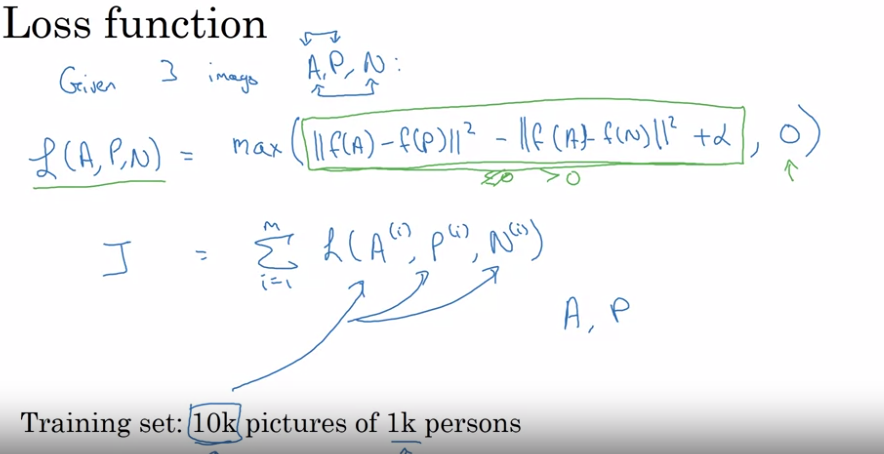 Loss function
Given 3 images A, P, N:
L(A, P, N) = max(||f(A) - f(P)||² - ||f(A) - f(N)||² + α, 0)
≤0 >0
J = Σ_{i=1}^{m} L(A^(i), P^(i), N^(i))
A, P
Training set: 10k pictures of 1k persons